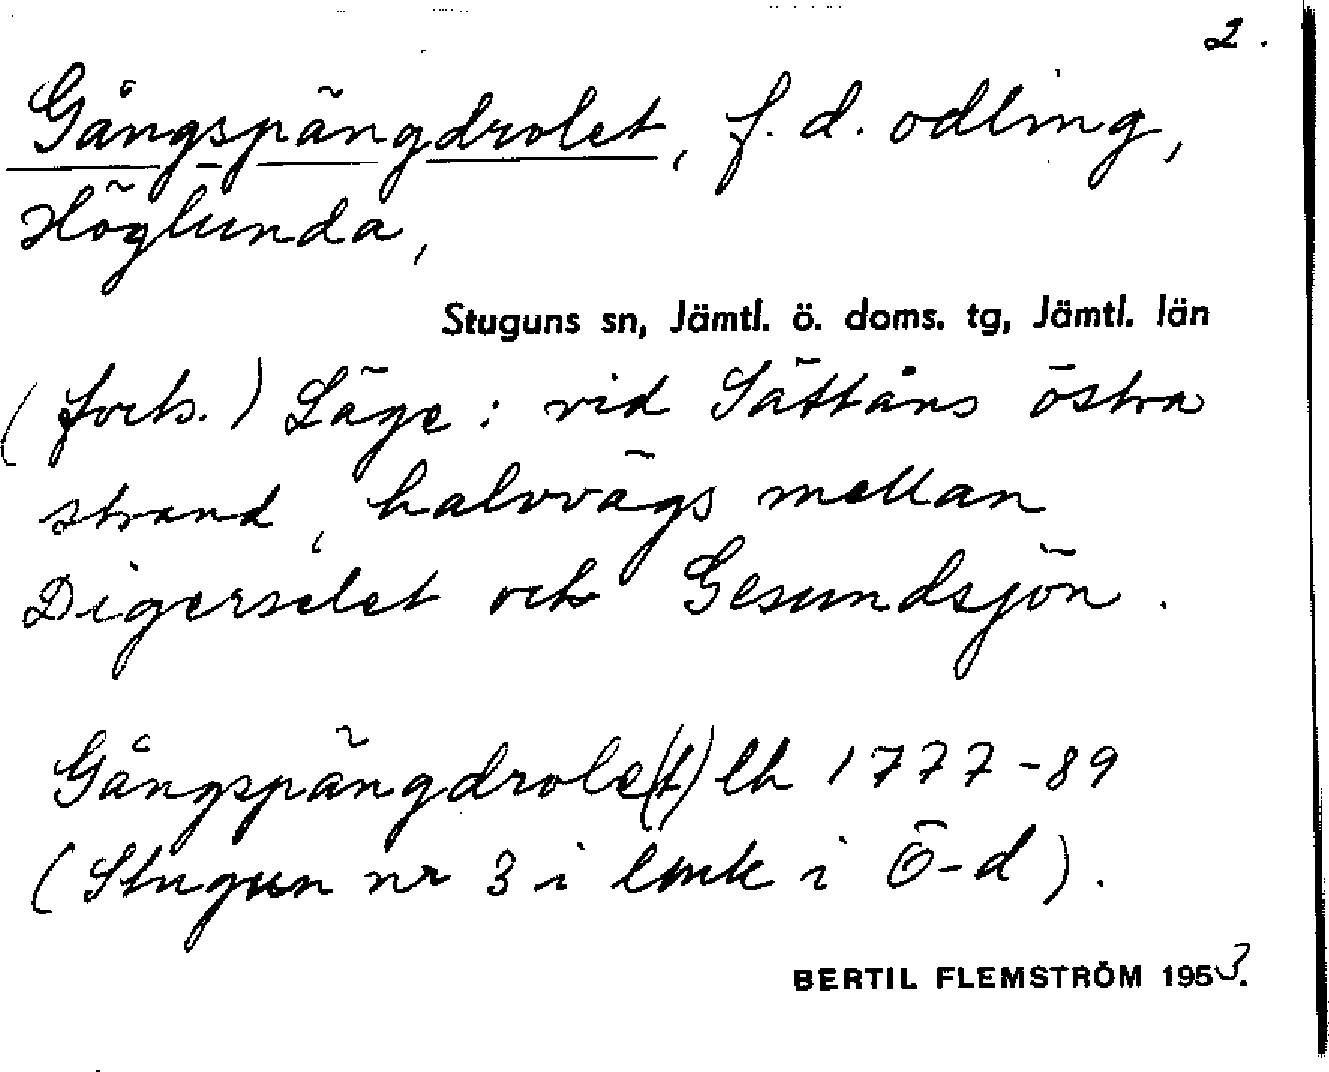 2.
Gångspängdrolet, f. d. odling,
Höglunda,
Stuguns sn, Jämtl. ö. doms. tg, Jämtl. län
(forts.) Läge: vid Sättåns östra
strand, halvvägs mellan
Digerselet och Gesundsjön.
Gångspängdrole(t) lh 1777-89
(Stugun nr 3 i lmk i Ö-d).
BERTIL FLEMSTRÖM 1953.